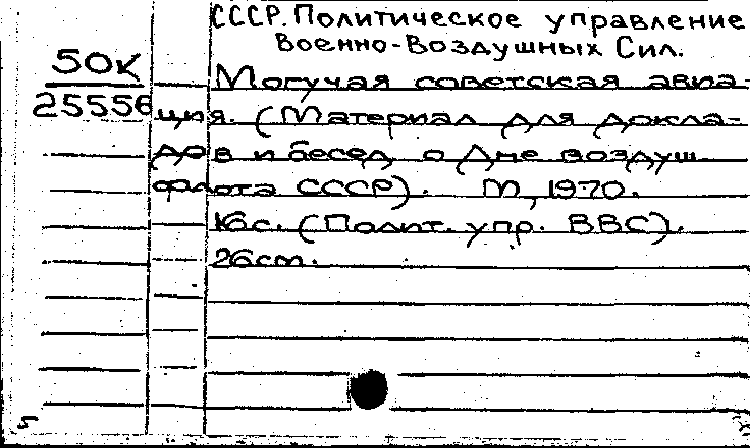 СССР. Политическое управление
Военно-Воздушных Сил.
50К
25556
Могучая советская авиа-
ция. (Материал для докла-
дов и бесед о Дне воздуш.
флота СССР). М, 1970.
16с. (Полит. упр. ВВС).
26cm.